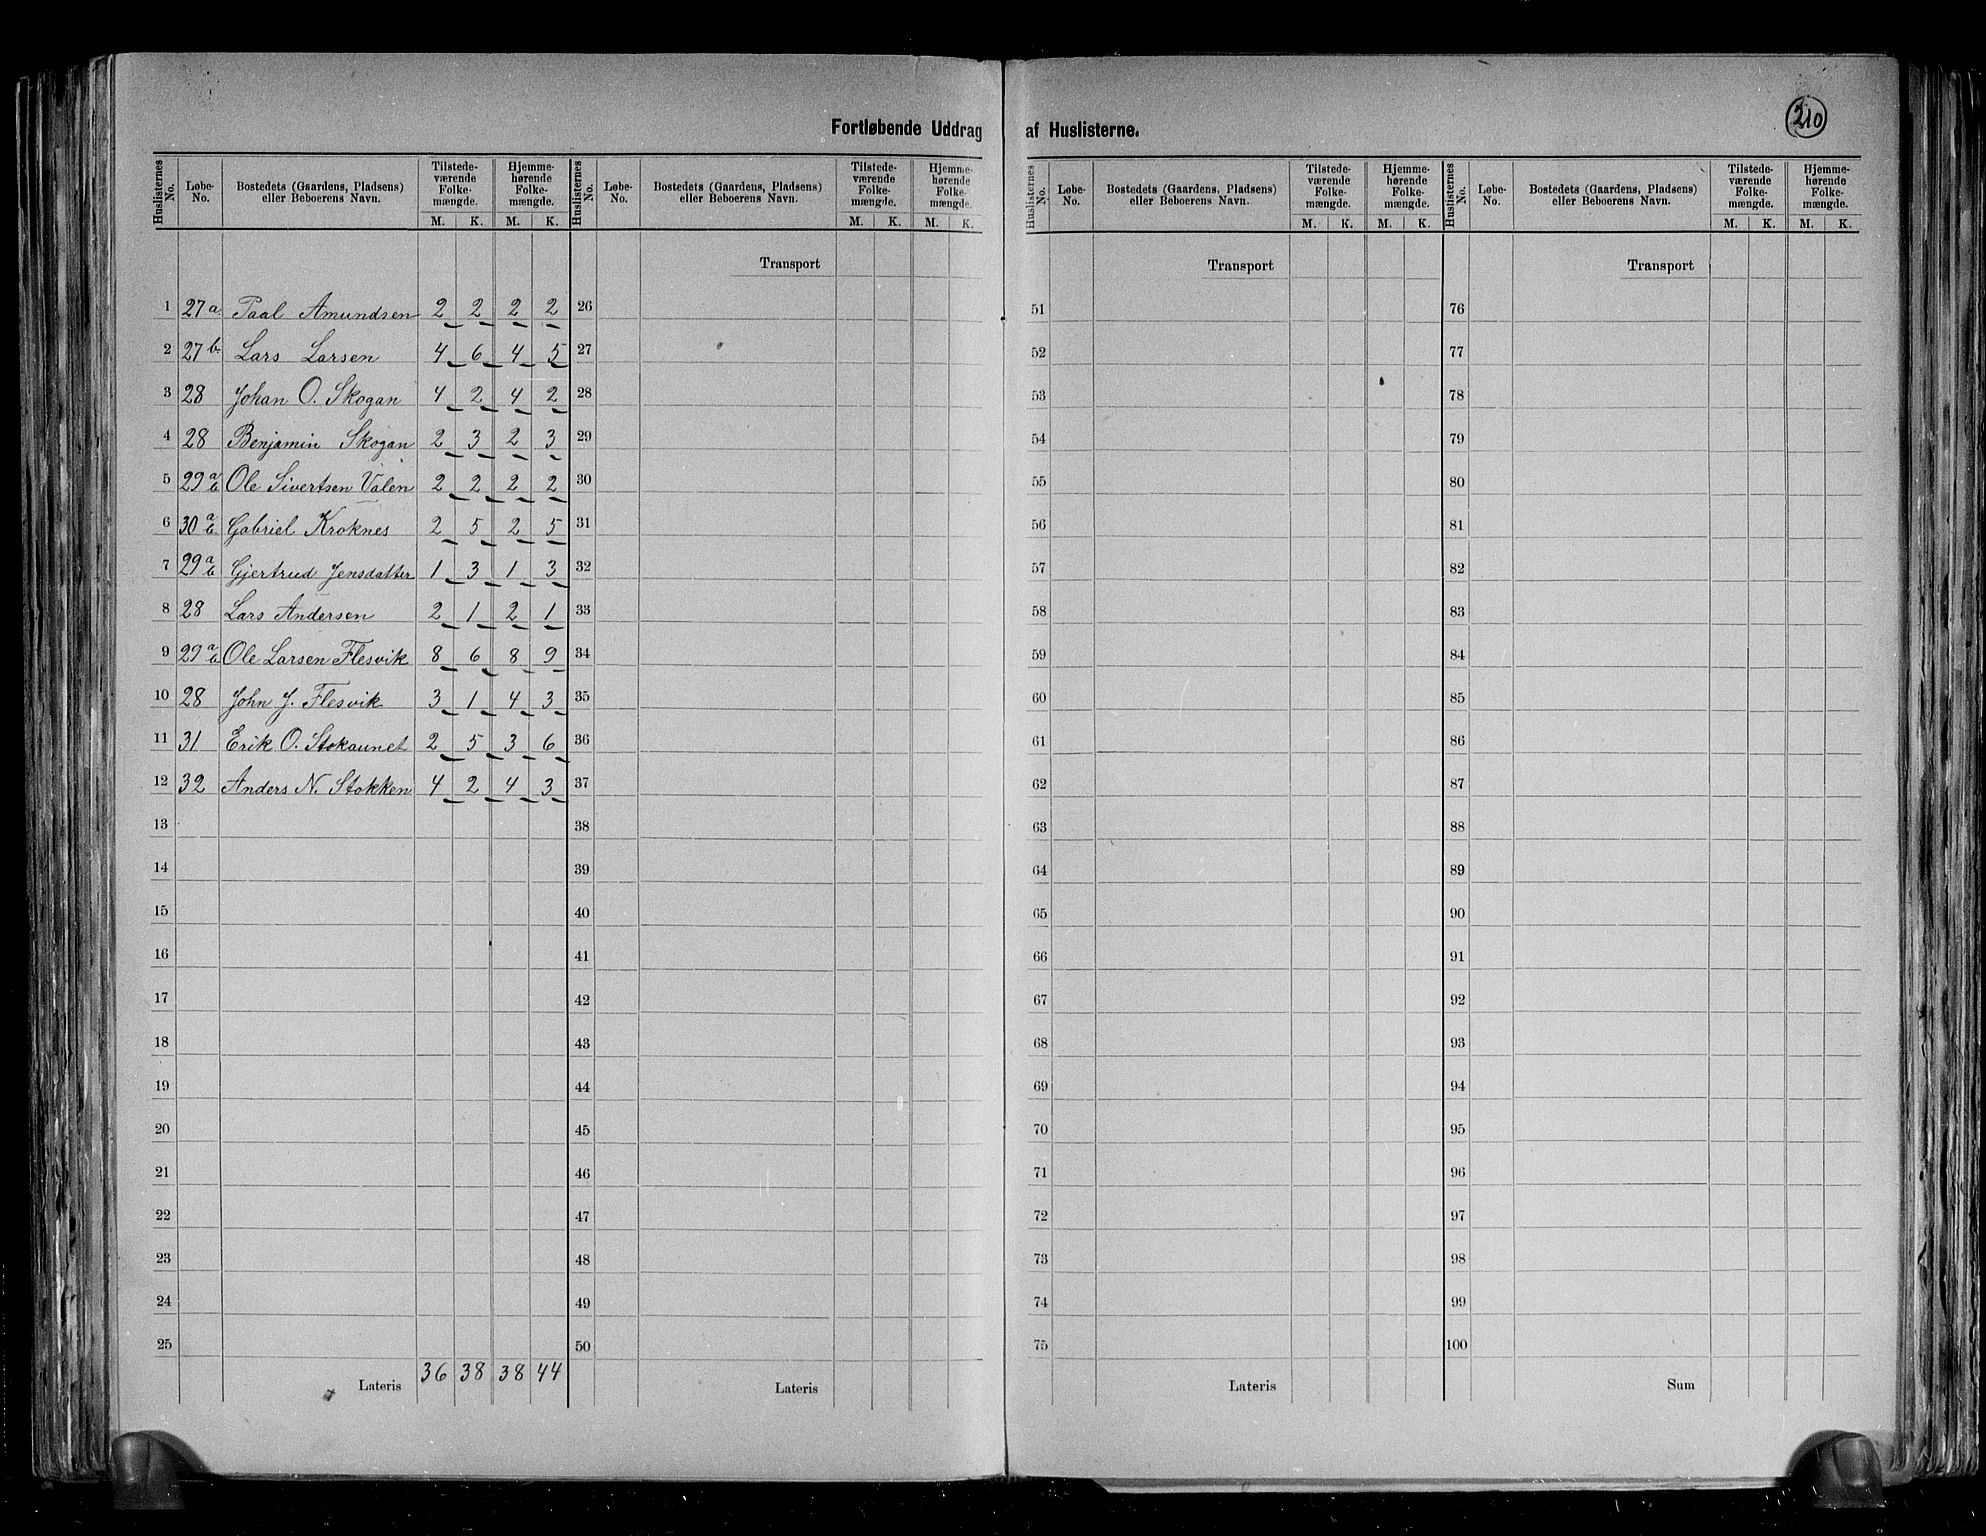 210
Fortløbende Uddrag af Huslisterne.
Huslisternes No. Løbe-No. Bostedets (Gaardens, Pladsens) eller Beboerens Navn. Tilstedeværende Folkemængde. M. K. Hjemmehørende Folkemængde. M. K.
Huslisternes No. Løbe-No. Bostedets (Gaardens, Pladsens) eller Beboerens Navn. Tilstedeværende Folkemængde. M. K. Hjemmehørende Folkemængde. M. K.
Huslisternes No. Løbe-No. Bostedets (Gaardens, Pladsens) eller Beboerens Navn. Tilstedeværende Folkemængde. M. K. Hjemmehørende Folkemængde. M. K.
Huslisternes No. Løbe-No. Bostedets (Gaardens, Pladsens) eller Beboerens Navn. Tilstedeværende Folkemængde. M. K. Hjemmehørende Folkemængde. M. K.
Transport Transport Transport
1 27a Paal Amundsen 2 2 2 2 26 51 76
2 27b Lars Larsen 4 6 4 5 27 52 77
3 28 Johan O. Skogan 4 2 4 2 28 53 78
4 28 Benjamin Skogan 2 3 2 3 29 54 79
5 29 a/b Ole Sivertsen Valen 2 2 2 2 30 55 80
6 30 a/b Gabriel Kroknes 2 5 2 5 31 56 81
7 29 a/b Gjertrud Jensdatter 1 3 1 3 32 57 82
8 28 Lars Andersen 2 1 2 1 33 58 83
9 29 a/b Ole Larsen Flesvik 8 6 8 9 34 59 84
10 28 John J. Flesvik 3 1 4 3 35 60 85
11 31 Erik O. Stokaunet 2 5 3 6 36 61 86
12 32 Anders N. Stokken 4 2 4 3 37 62 87
13 38 63 88
14 39 64 89
15 40 65 90
16 41 66 91
17 42 67 92
18 43 68 93
19 44 69 94
20 45 70 95
21 46 71 96
22 47 72 97
23 48 73 98
24 49 74 99
25 50 75 100
Lateris 36 38 38 44 Lateris Lateris Sum